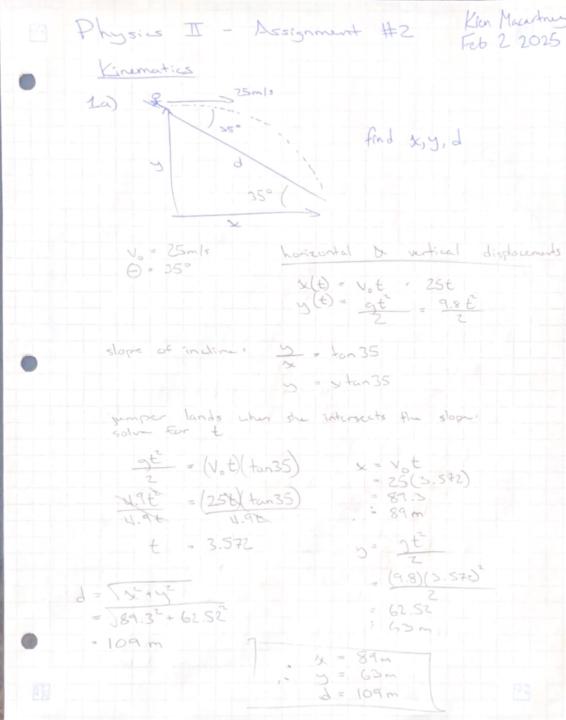 Physics II - Assignment #2
Kien Macartney
Feb 2 2025
Kinematics
1a)
25m/s
35°
y
d
35°
x
find x, y, d
v₀ = 25m/s
θ = 35°
horizontal & vertical displacements
x(t) = v₀t = 25t
y(t) = gt²/2 = 9.8t²/2
slope of incline: y/x = tan 35
y = x tan 35
jumper lands when she intersects the slope.
solve for t
gt²/2 = (v₀t)(tan35)
4.9t²/4.9t = (25t)(tan35)/4.9t
t = 3.572
x = v₀t
= 25(3.572)
= 89.3
= 89m
y = gt²/2
= (9.8)(3.572)²/2
= 62.52
= 63m
d = √x² + y²
= √89.3² + 62.52²
= 109 m
∴ x = 89m
y = 63m
d = 109m